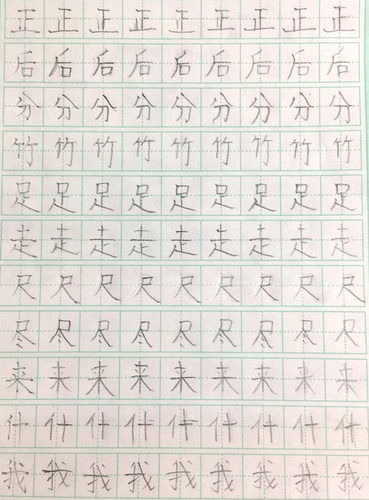 正正正正正正正正正
后后后后后后后后后
分分分分分分分分分
竹竹竹竹竹竹竹竹竹
足足足足足足足足足
走走走走走走走走走
尺尺尺尺尺尺尺尺尺
尽尽尽尽尽尽尽尽尺
来来来来来来来来来
什什什什什什什什什
我我我我我我我我我